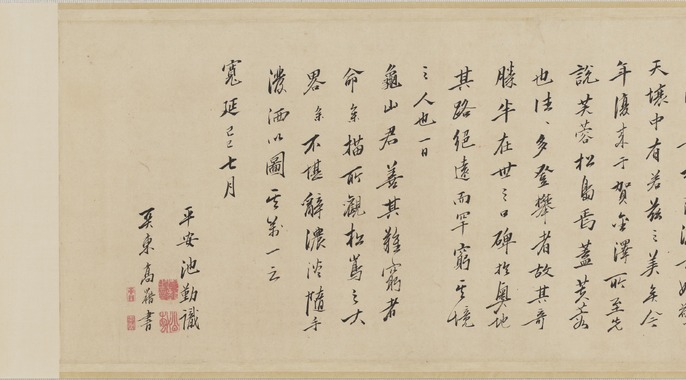 天壤中有若茲之美矣今
年復來于賀金澤所至先
說芙蓉松島焉蓋芙蓉
也往々多登攀者故其奇
勝半在世之口碑於奧地
其路絕遠而罕窮其境
之人也一日
龜山君善其難窮者
命余描所觀松嶌之大
畧余不堪辭濃淡隨手
潑洒以圖其萬一云
寬延己巳七月
平安池勤識
東高 書